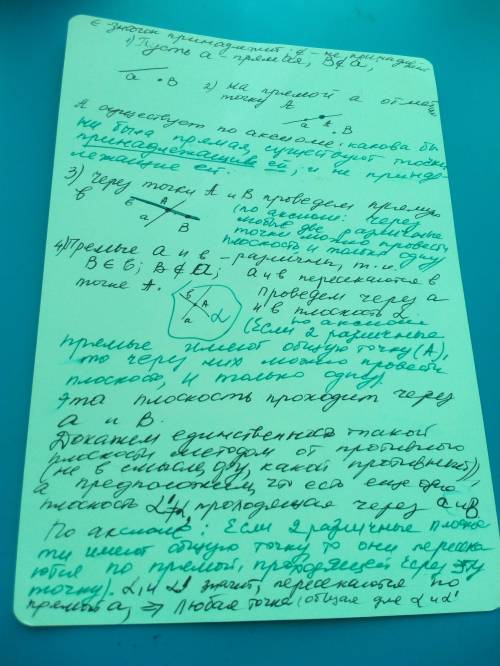 ∈ - значок принадлежит ∉ - не принадлежит
1) Пусть a - прямая, B∉a,
a •B
2) на прямой a отмет
точку A
a A •B
A существует по аксиоме: какова бы
ни была прямая, существуют точки,
принадлежащие ей, и не принад-
лежащие ей.
3) Через точки A и B проведем прямую
в
в A a B
(по аксиоме: через
любые две различные
точки можно провести
плоскость и только одну
4) Прямые a и в - различны, т.к.
B∈в; B∉a, a и в пересекаются в
точке A.
в A a α
проведем через a
и в плоскость α
по аксиоме
(Если 2 различные
прямые имеют общую точку (A),
то через них можно провести
плоскость, и только одну).
Эта плоскость проходит через
a и B.
Докажем единственность такой
плоскости методом от противного
(не в смысле фу, какой противный))
а предположим, что есть еще одна
плоскость α'≠α, проходящая через a и B
По аксиоме: Если 2 различные плоскос
ти имеют общую точку то они пересека
ются по прямой, проходящей через эту
точку). α и α' значит, пересекаются по
прямой a, ⇒ любая точка, общая для α и α'